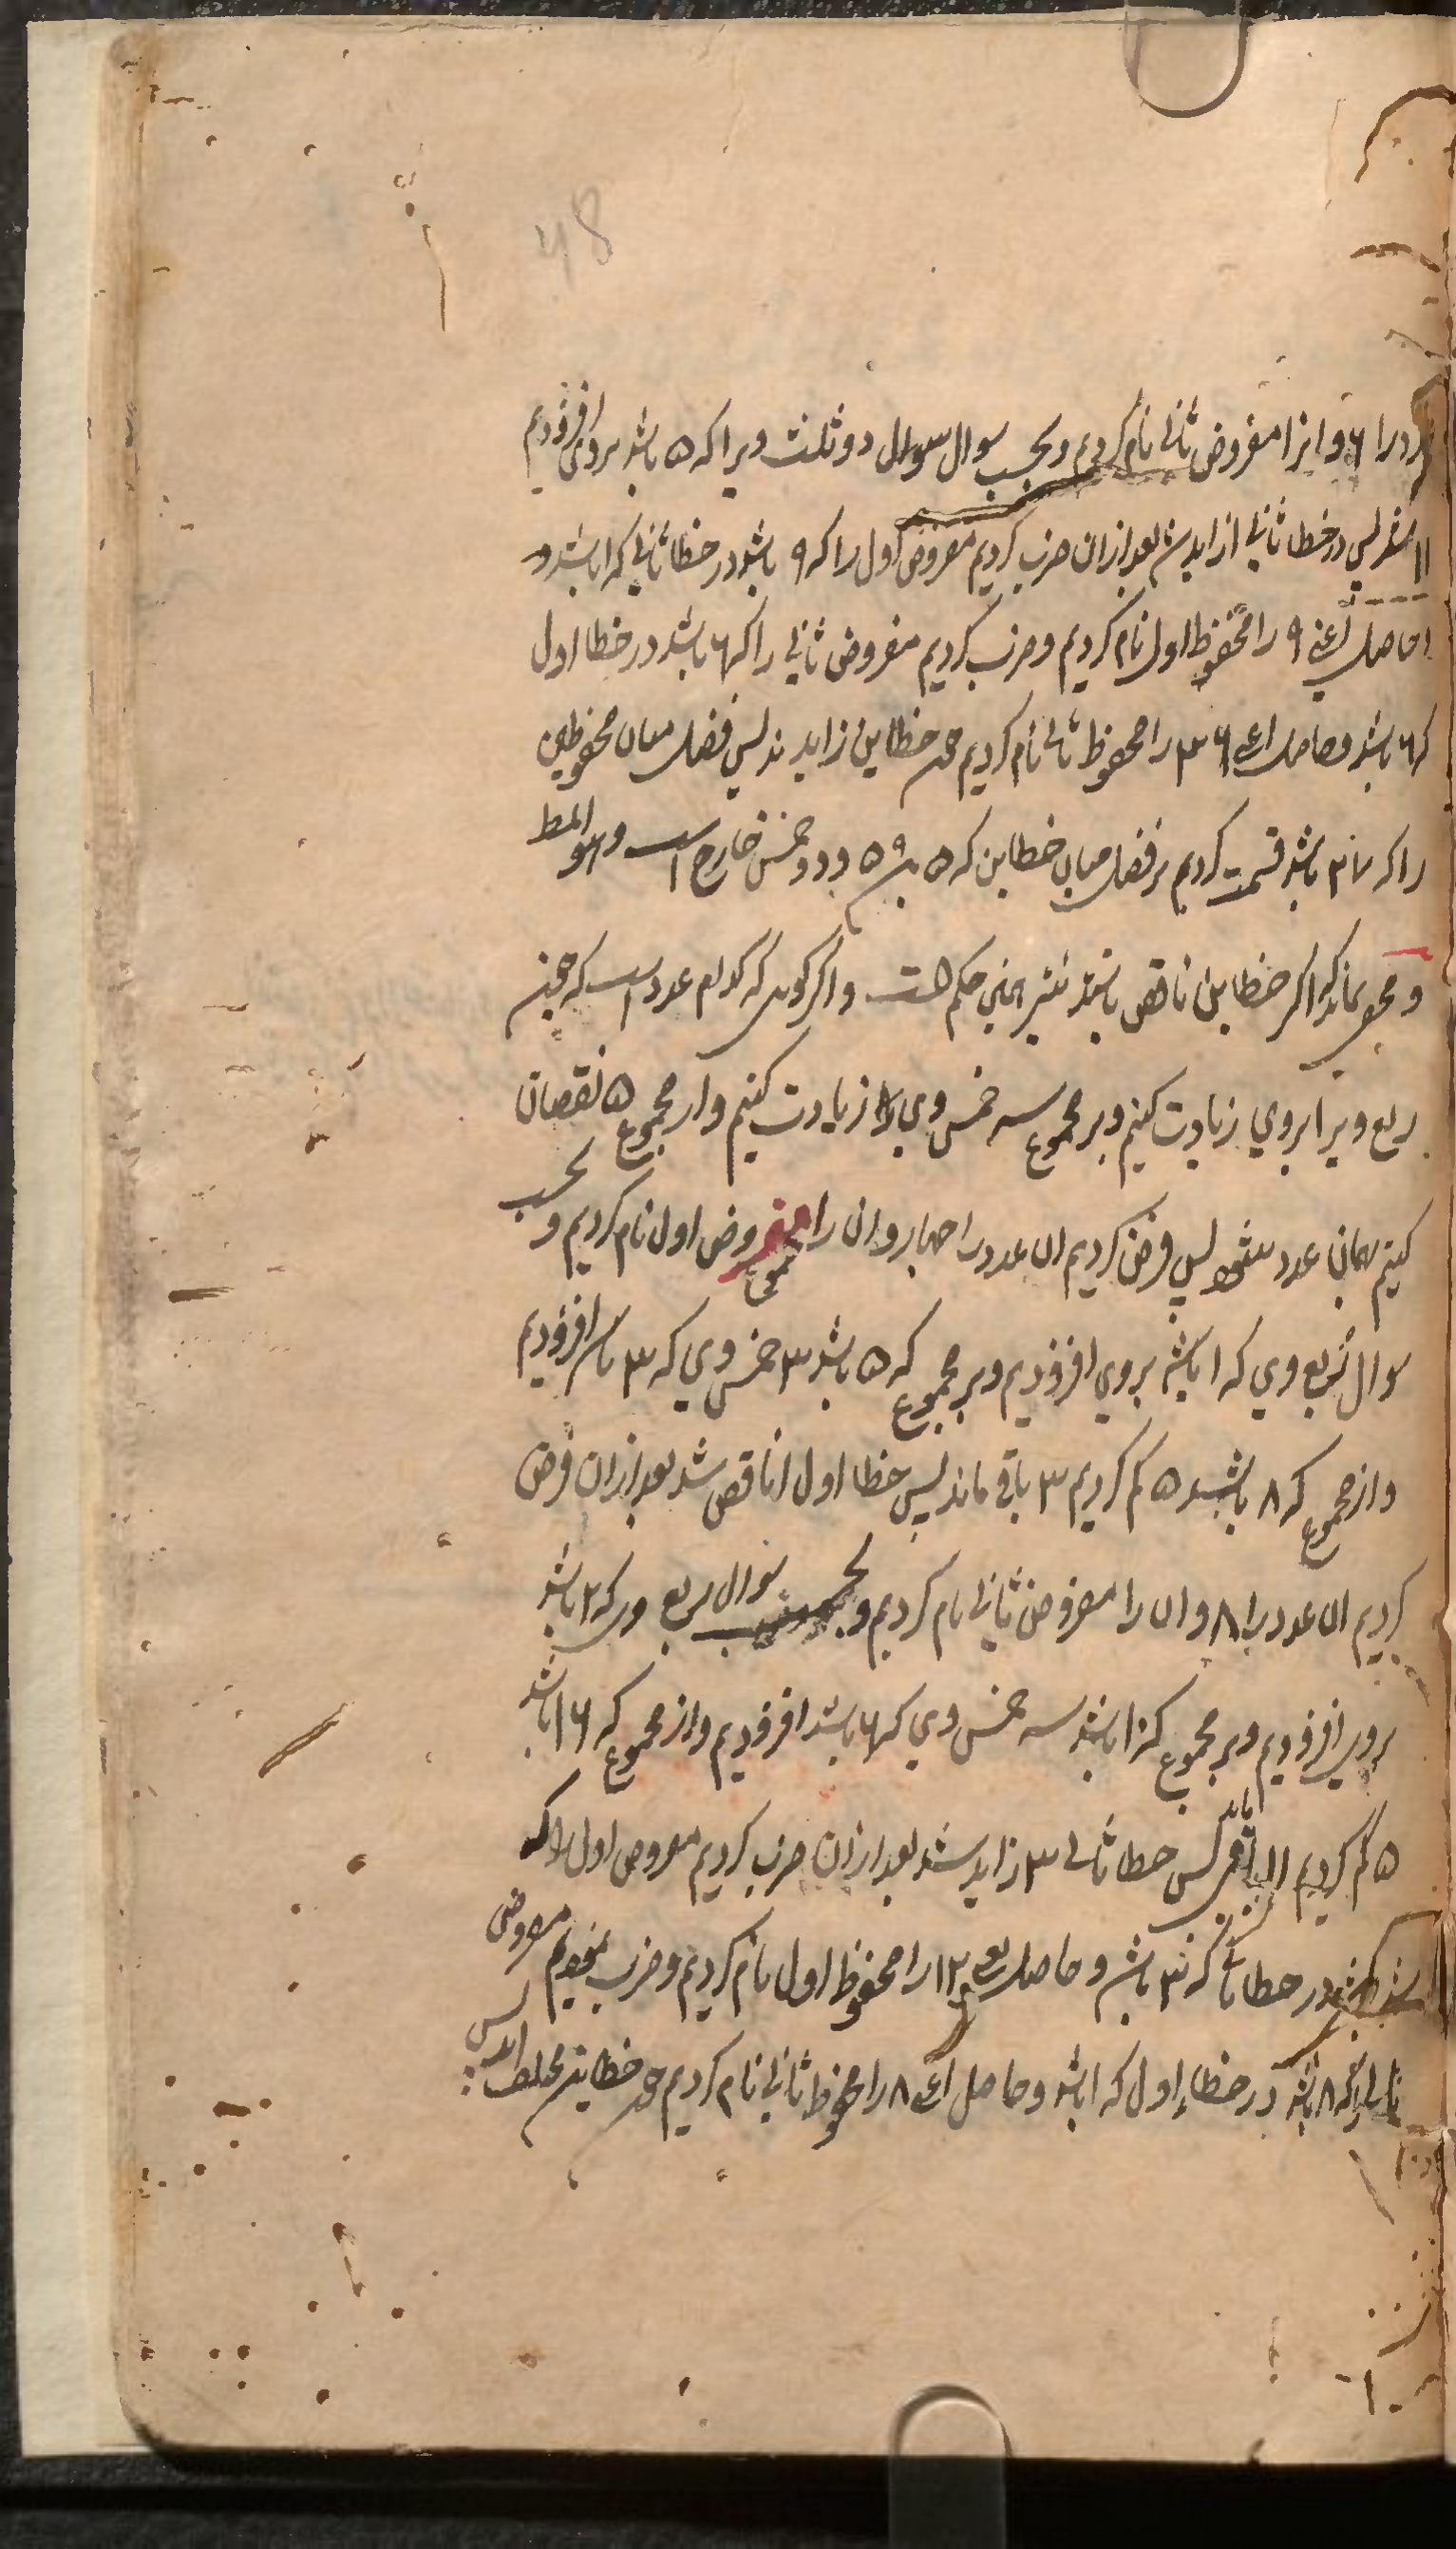 48
را ۶ و انرا مفروض ثانی نام کردیم و بحسب سوال سوال دو ثلث ویرا که ۵ باشد بروی افزودیم
۱۱ شد پس خطا ثانی ۱ زاید شد بعد ازان ضرب کردیم مفروض اول را که ۹ باشد در خطا ثانی که ۱ باشد و
حاصل اعنی ۹ را محفوظ اول نام کردیم و ضرب کردیم مفروض ثانی را که ۶ باشد در خطا اول
که ۶ باشد و حاصل اعنی ۳۶ را محفوظ ثانی نام کردیم چون خطاین زایدند پس فضل میان محفوظین
را که ۲۷ باشد قسمت کردیم بر فضل میان خطاین که ۵ ۵ و دو خمس خارج است و هو المط
و مخفی نماند که اگر خطاین ناقص باشند نیز همین حکم است و اگر گویند که کدام عدد است که چون
ربع ویرا بروی زیادت کنیم و بر مجموع سه خمس وی را زیادت کنیم و از مجموع ۵ نقصان
کنیم همان عدد شود پس فرض کردیم ان عدد را چهار و ان را مفروض اول نام کردیم و بحسب
سوال ربع وی که ۱ باشد بروی افزودیم و بر مجموع که ۵ باشد ۳ خمس وی که ۳ باشد افزودیم
و از مجموع که ۸ باشد ۵ کم کردیم ۳ باقی ماند پس خطا اول ۱ ناقص شد بعد ازان فرض
کردیم ان عدد را ۸ و ان را مفروض ثانی نام کردیم و بحسب سوال ربع وی که ۲ باشد
بروی افزودیم و بر مجموع که ۱۰ باشد سه خمس وی که ۶ باشد افزودیم و از مجموع که ۱۶ باشد
۵ کم کردیم ۱۱ باقی ماند پس خطا ثانی ۳ زاید شد بعد ازان ضرب کردیم مفروض اول را که
باشد در خطا ثانی که ۳ باشد و حاصل یعنی ۱۲ را محفوظ اول نام کردیم و ضرب نمودیم مفروض
ثانی را که ۸ باشد در خطاء اول که ۱ باشد و حاصل اعنی ۸ را محفوظ ثانی نام کردیم چون خطاین مختلف اند پس